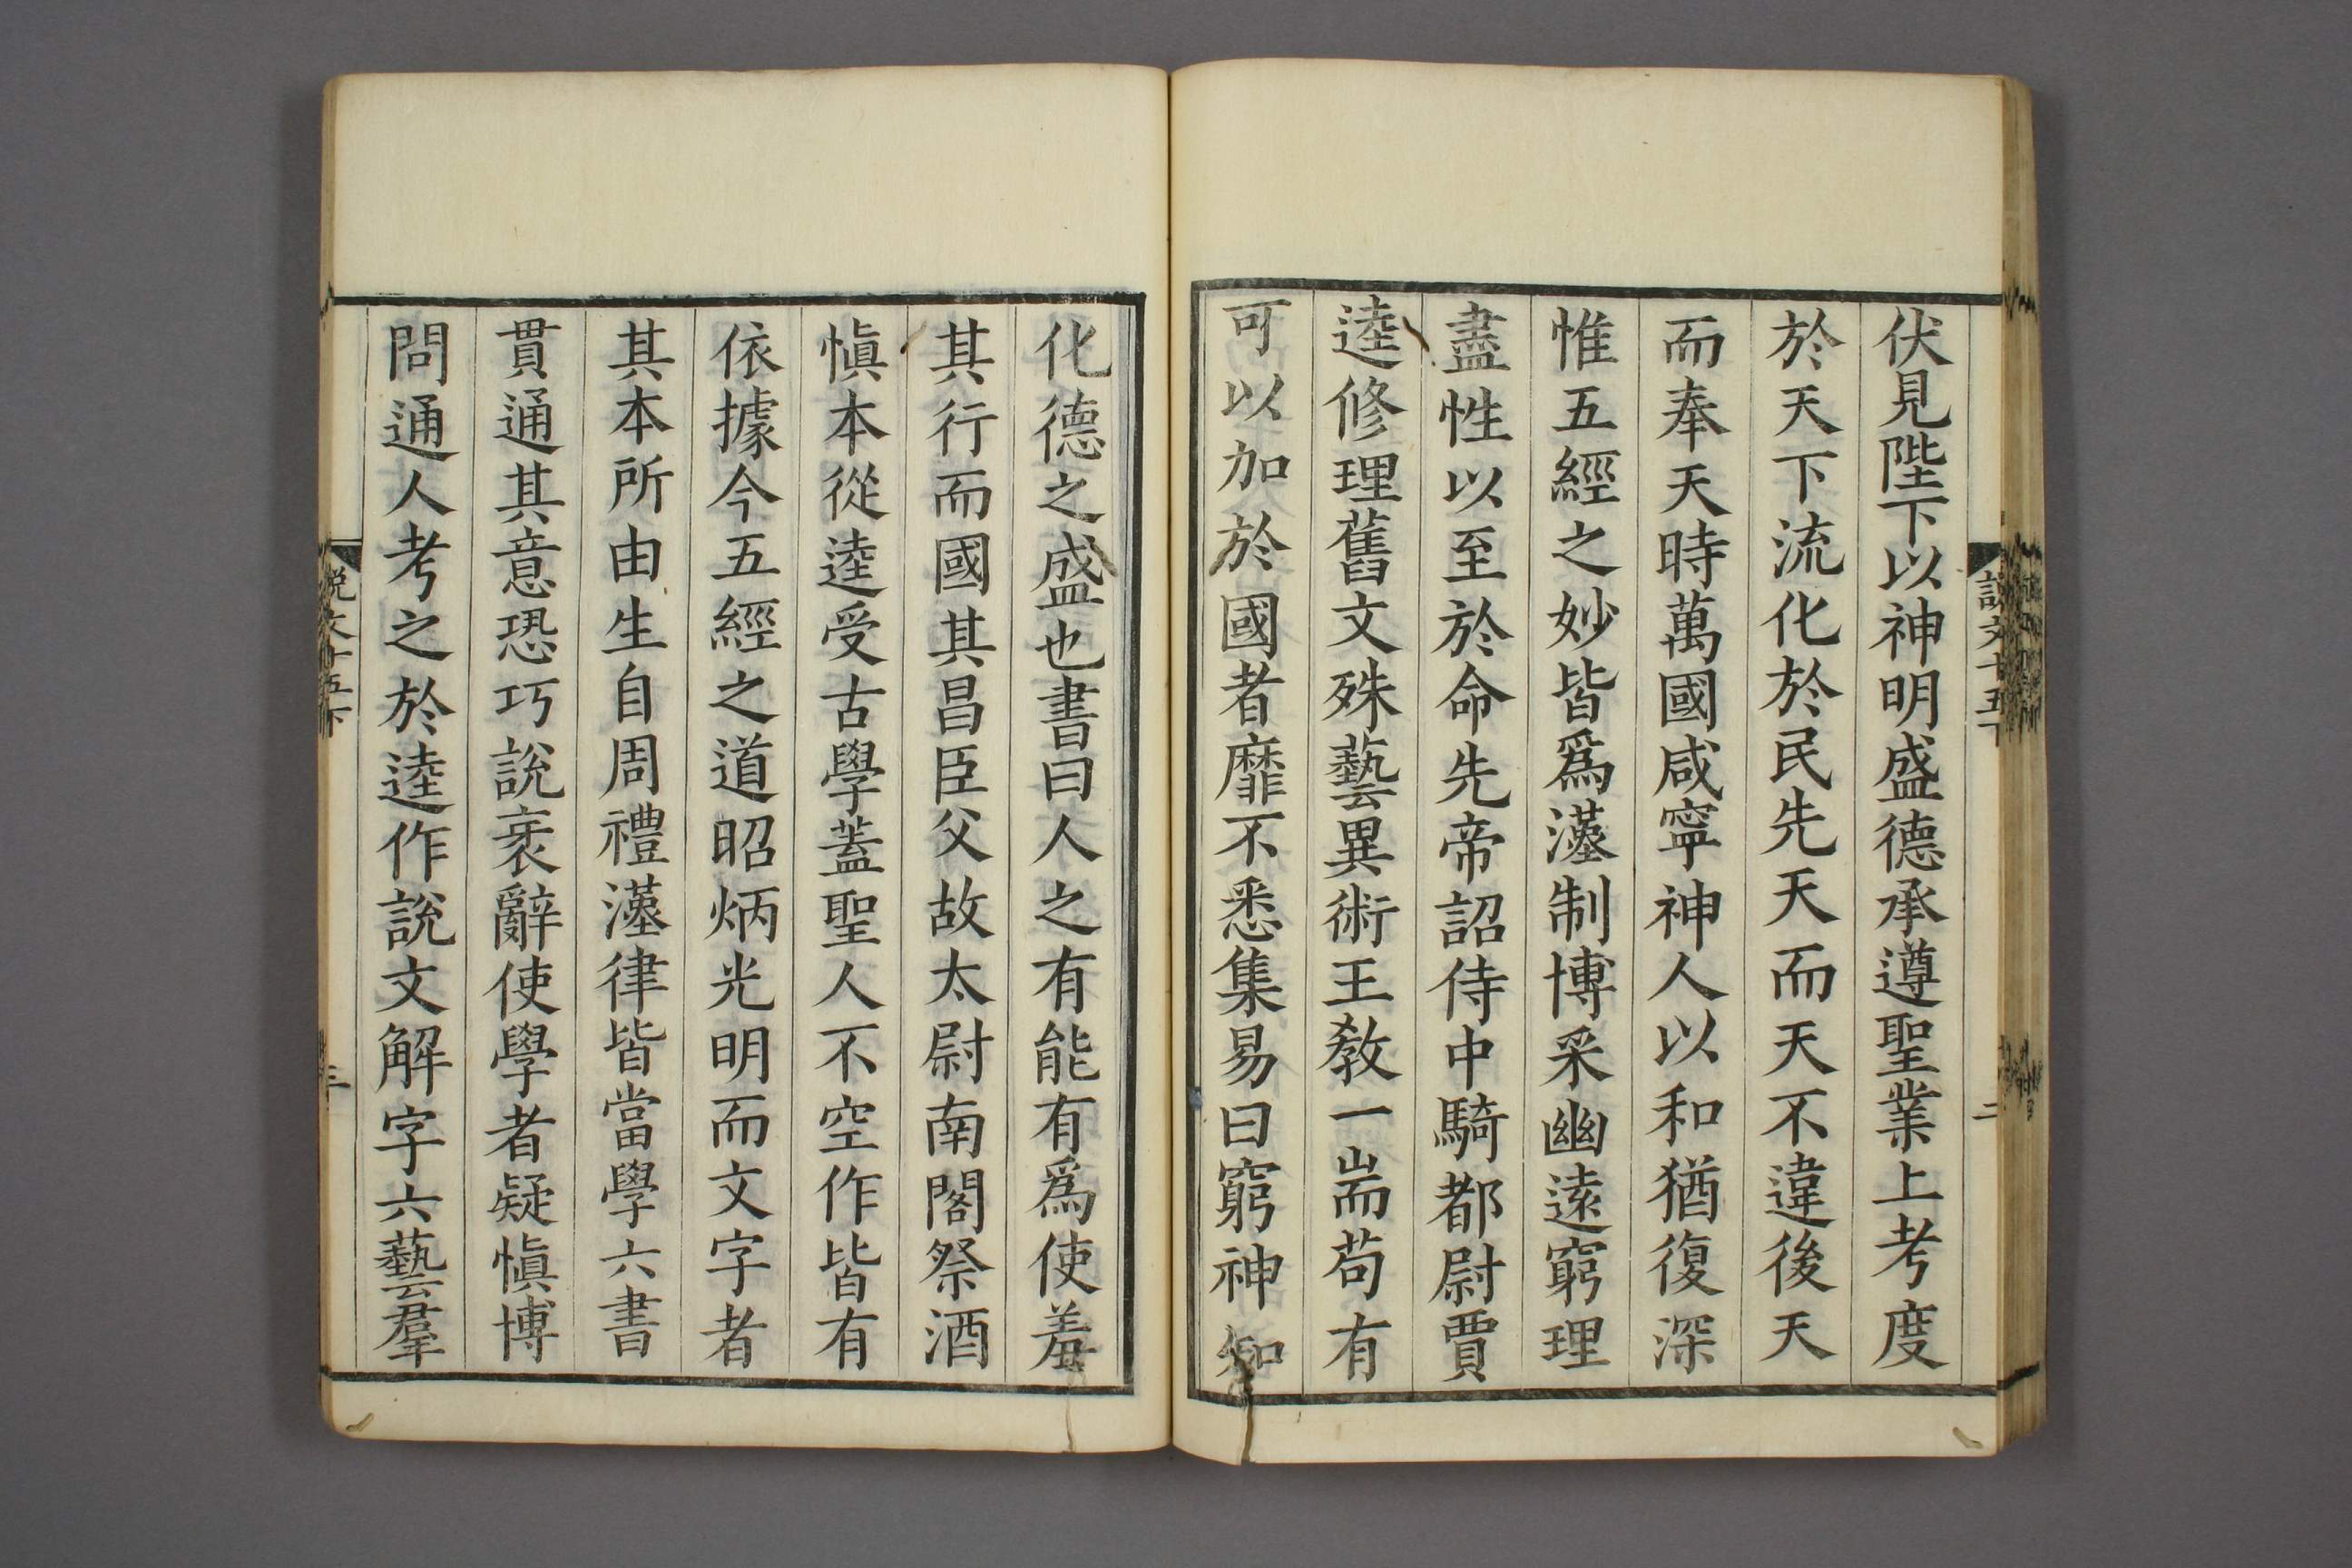 說文十五下
二
伏見陛下以神明盛德承遵聖業上考度
於天下流化於民先天而天不違後天
而奉天時萬國咸寧神人以和猶復深
惟五經之妙皆爲漢制博采幽遠窮理
盡性以至於命先帝詔侍中騎都尉賈
逵修理舊文殊藝異術王敎一耑苟有
可以加於國者靡不悉集易曰窮神知
化德之盛也書曰人之有能有爲使羞
其行而國其昌臣父故太尉南閣祭酒
愼本從逵受古學蓋聖人不空作皆有
依據今五經之道昭炳光明而文字者
其本所由生自周禮漢律皆當學六書
貫通其意恐巧說衺辭使學者疑愼博
問通人考之於逵作說文解字六藝羣
說文十五下
三